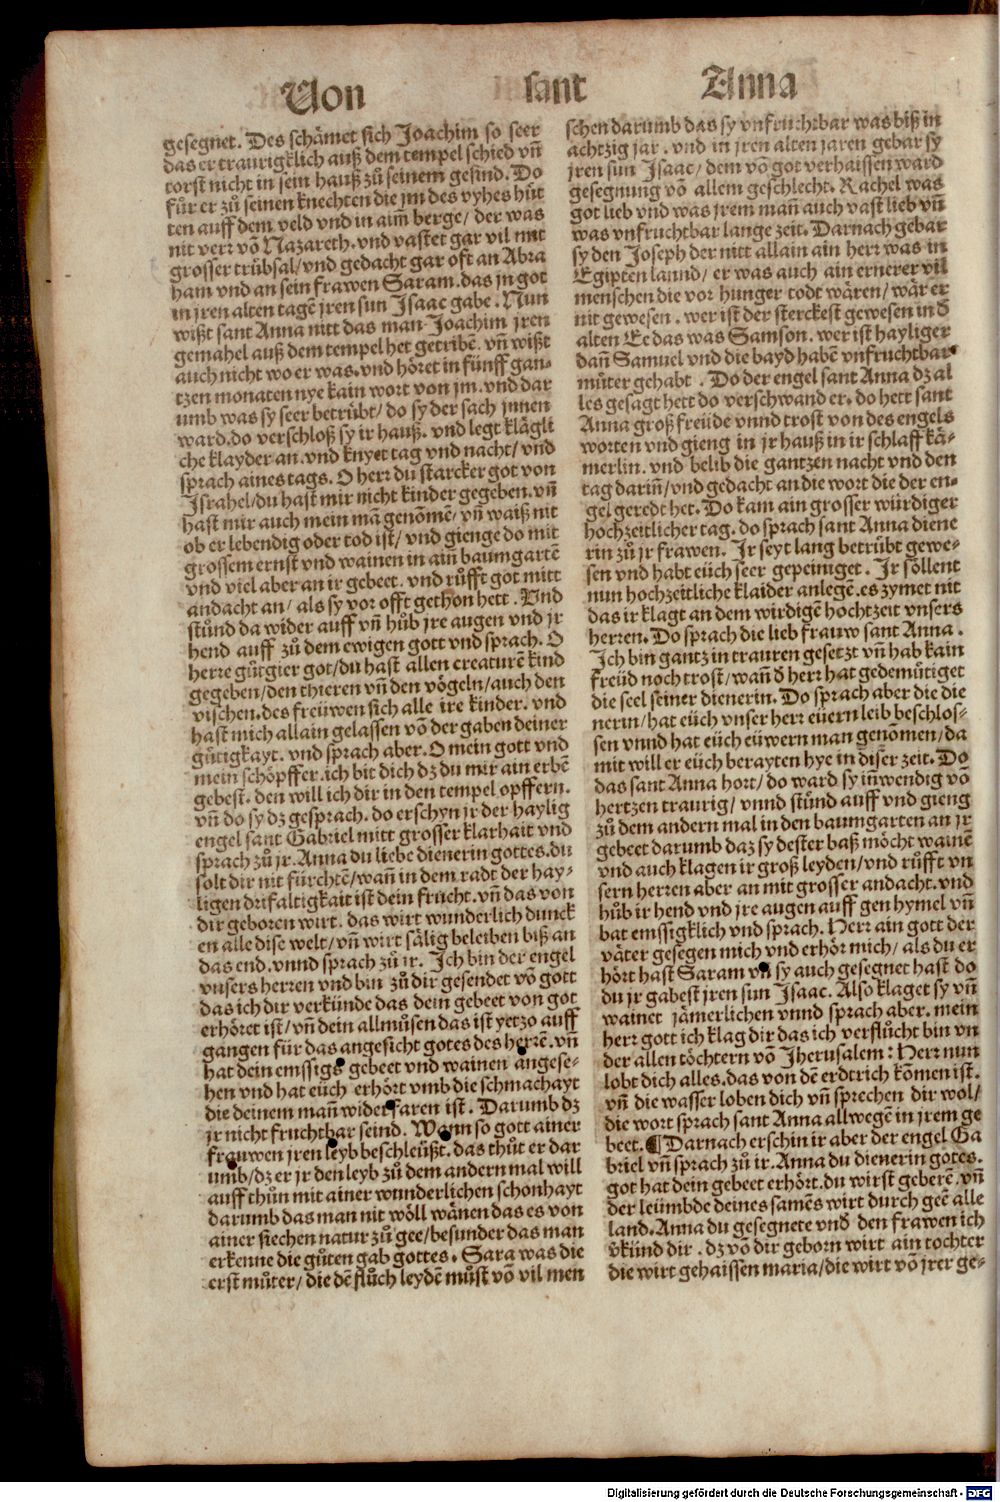 Von sant Anna
gesegnet. Des schämet sich Joachim so seer
das er traurigklich auß dem tempel schied vñ
torst nicht in sein hauß zů seinem gesind. Do
fůr er zů seinen knechten die jm des vyhes hůt
ten auff dem veld vnd in aim̃ berge/ der was
nit verr vō Nazareth. vnd vastet gar vil mit
grosser trübsal/ vnd gedacht gar oft an Abra
ham vnd an sein frawen Saram. das jn got
in jren alten tagē jren sun Isaac gabe. Nun
wißt sant Anna nitt das man Joachim jren
gemahel auß dem tempel het getribē. vñ wißt
auch nicht wo er was. vnd höret in fünff gan-
tzen monaten nye kain wort von jm. vnd dar
umb was sy seer betrübt/ do sy der sach jnnen
ward. do verschloß sy ir hauß. vnd legt klägli
che klayder an. vnd knyet tag vnd nacht/ vnd
sprach aines tags. O herr du starcker got von
Israhel/ du hast mir nicht kinder gegeben. vñ
hast mir auch mein mā genōmē/ vñ waiß nit
ob er lebendig oder tod ist/ vnd gienge do mit
grossem ernst vnd wainen in ain̄ baumgartē
vnd viel aber an ir gebeet. vnd růfft got mitt
andacht an/ als sy vor offt gethon hett. Vnd
stůnd da wider auff vñ hůb jre augen vnd jr
hend auff zů dem ewigen gott vnd sprach. O
herre gütgier got/ du hast allen creaturē kind
gegeben/ den thieren vñ den vögeln/ auch den
vischen. des freüwen sich alle ire kinder. vnd
hast mich allain gelassen vō der gaben deiner
gütigkayt. vnd sprach aber. O mein gott vnd
mein schöpffer. ich bit dich dz du mir ain erbē
gebest. den will ich dir in den tempel opffern.
vñ do sy dz gesprach. do erschyn jr der haylig
engel sant Gabriel mitt grosser klarhait vnd
sprach zů jr. Anna du liebe dienerin gottes. du
solt dir nit fürchtē/ wañ in dem radt der hay-
ligen drifaltigkait ist dein frucht. vñ das von
dir geboren wirt. das wirt wunderlich dunck
en alle dise welt/ vñ wirt sälig beleiben biß an
das end. vnnd sprach zů ir. Ich bin der engel
vnsers herren vnd bin zů dir gesendet vō gott
das ich dir verkünde das dein gebeet von got
erhöret ist/ vñ dein allmůsen das ist yetzo auff
gangen für das angesicht gotes des herrē. vñ
hat dein emssigs gebeet vnd wainen angese-
hen vnd hat eüch erhört vmb die schmachayt
die deinem mañ widerfaren ist. Darumb dz
jr nicht fruchtbar seind. Wann so gott ainer
frauwen jren leyb beschleüßt. das thůt er dar
umb/ dz er jr den leyb zů dem andern mal will
auff thůn mit ainer wunderlichen schonhayt
darumb das man nit wöll wänen das es von
ainer siechen natur zů gee/ besunder das man
erkenne die gůten gab gottes. Sara was die
erst můter/ die dē flůch leydē můst vō vil men
schen darumb das sy vnfruchtbar was biß in
achtzig jar. vnd in jren alten jaren gebar sy
jren sun Isaac/ dem vō got verhaissen ward
gesegnung vō allem geschlecht. Rachel was
got lieb vnd was jrem mañ auch vast lieb vñ
was vnfruchtbar lange zeit. Darnach gebar
sy den Joseph der nitt allain ain herr was in
Egipten lannd/ er was auch ain ernerer vil
menschen die vor hunger todt wären/ wär er
nit gewesen. wer ist der sterckest gewesen in d̄
alten Ee das was Samson. wer ist hayliger
dañ Samuel vnd die bayd habē vnfruchtbar
můter gehabt. Do der engel sant Anna dz al
les gesagt hett do verschwand er. do hett sant
Anna groß freüde vnnd trost von des engels
worten vnd gieng in jr hauß in ir schlaff kä-
merlin. vnd belib die gantzen nacht vnd den
tag dariñ/ vnd gedacht an die wort die der en-
gel geredt het. Do kam ain grosser würdiger
hochzeitlicher tag. do sprach sant Anna diene
rin zů jr frawen. Ir seyt lang betrübt gewe-
sen vnd habt eüch seer gepeiniget. Ir söllent
nun hochzeitliche klaider anlegē. es zymet nit
das ir klagt an dem wirdigē hochtzeit vnsers
herren. Do sprach die lieb frauw sant Anna.
Ich bin gantz in trauren gesetzt vñ hab kain
freüd noch trost/ wañ d̄ herr hat gedemütiget
die seel seiner dienerin. Do sprach aber die die
nerin/ hat eüch vnser herr euern leib beschlos-
sen vnnd hat eüch eüwern man genōmen/ da
mit will er eüch berayten hye in diser zeit. Do
das sant Anna hort/ do ward sy iñwendig vō
hertzen traurig/ vnnd stůnd auff vnd gieng
zů dem andern mal in den baumgarten an jr
gebeet darumb daz sy dester baß möcht wainē
vnd auch klagen ir groß leyden/ vnd růfft vn
sern herren aber an mit grosser andacht. vnd
hůb ir hend vnd jre augen auff gen hymel vñ
bat emssigklich vnd sprach. Herr ain gott der
väter gesegen mich vnd erhör mich/ als du er
hört hast Saram vñ sy auch gesegnet hast do
du jr gabest jren sun Isaac. Also klaget sy vñ
wainet jämerlichen vnnd sprach aber. mein
herr gott ich klag dir das ich verflůcht bin vn
der allen töchtern vō Jherusalem: Herr nun
lobt dich alles. das von dē erdtrich kōmen ist.
vñ die wasser loben dich vñ sprechen dir wol/
die wort sprach sant Anna allwegē in jrem ge
beet. ¶ Darnach erschin ir aber der engel Ga
briel vñ sprach zů ir. Anna du dienerin gotes.
got hat dein gebeet erhört. du wirst geberē. vñ
der leümbde deines samēs wirt durch geē alle
land. Anna du gesegnete vnd̄ den frawen ich
v̄künd dir. dz vō dir geborn wirt ain tochter
die wirt gehaissen maria/ die wirt vō jrer ge-
Digitalisierung gefördert durch die Deutsche Forschungsgemeinschaft - DFG